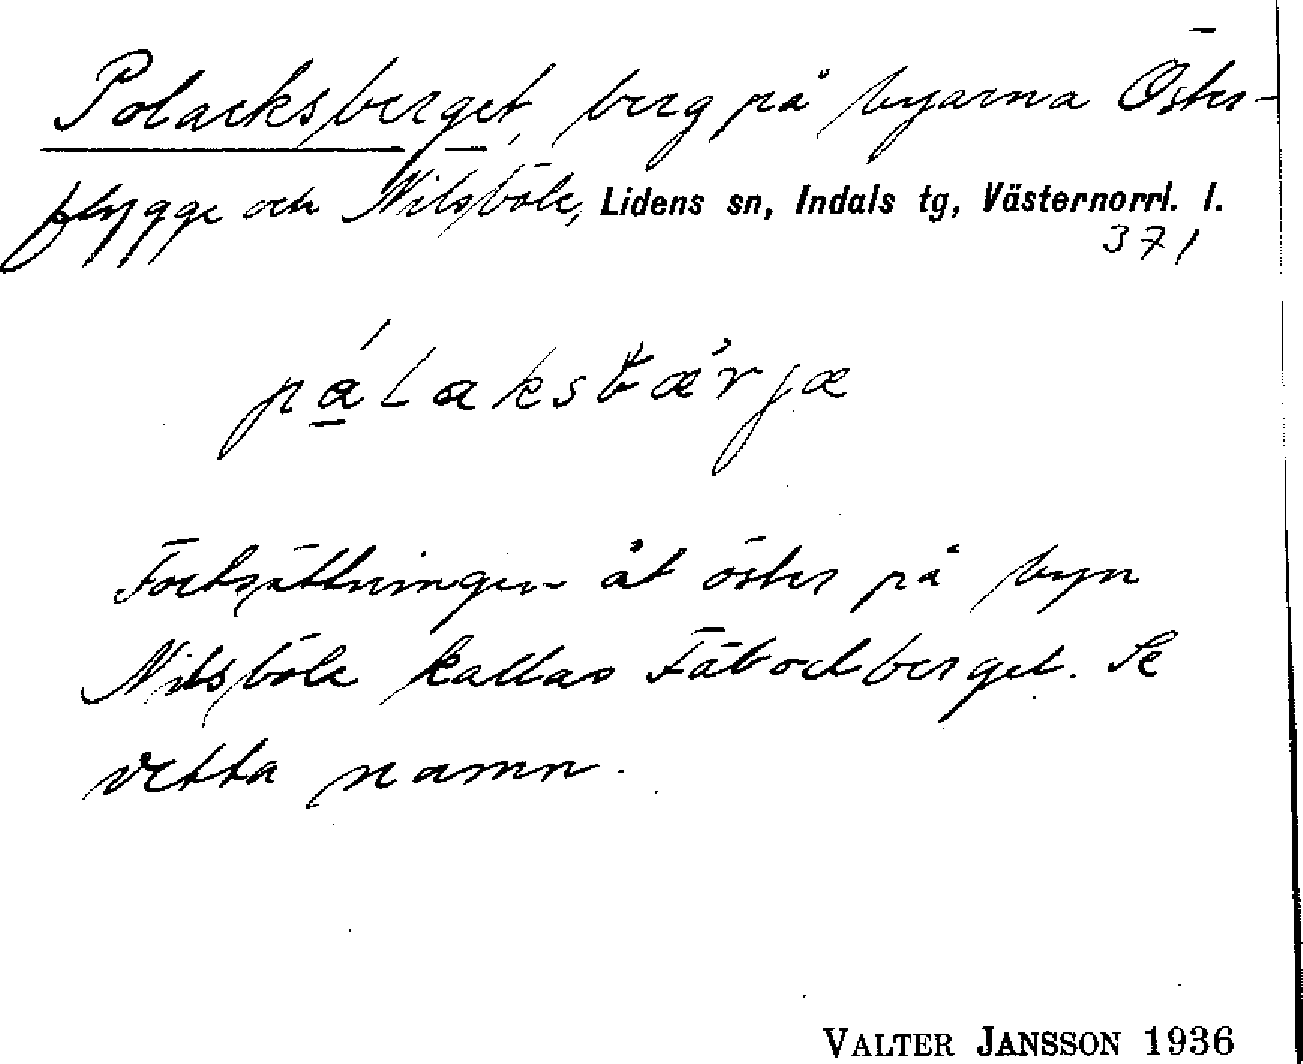 Polacksberget, berg på byarna Öster-
flygge och Nilsböle, Lidens sn, Indals tg, Västernorrl. l.
371
pálaksbǽrjæ
Fortsättningen åt öster på byn
Nilsböle kallas Fäbodberget. Se
detta namn.
VALTER JANSSON 1936